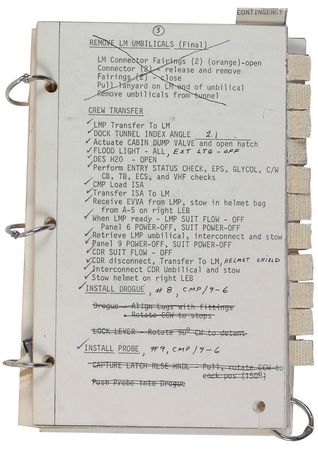 CONTINGENCY
3
REMOVE LM UMBILICALS (Final)
LM Connector Fairings (2) (orange)-open
Connector (2) - release and remove
Fairings (2) - close
Pull lanyard on LM end of umbilical
Remove umbilicals from tunnel
CREW TRANSFER
✓LMP Transfer To LM
✓DOCK TUNNEL INDEX ANGLE 2.1
✓Actuate CABIN DUMP VALVE and open hatch
✓FLOOD LIGHT - ALL, EXT LTG - OFF
✓DES H20 - OPEN
✓Perform ENTRY STATUS CHECK, EPS, GLYCOL, C/W
CB, TB, ECS, and VHF checks
✓CMP Load ISA
✓Transfer ISA To LM
✓Receive EVVA from LMP, stow in helmet bag
from A-5 on right LEB
✓When LMP ready - LMP SUIT FLOW - OFF
Panel 6 POWER-OFF, SUIT POWER-OFF
✓Retrieve LMP umbilical, interconnect and stow
✓Panel 9 POWER-OFF, SUIT POWER-OFF
✓CDR SUIT FLOW - OFF
✓CDR disconnect, Transfer To LM, HELMET SHIELD
✓Interconnect CDR Umbilical and stow
✓Stow helmet on right LEB
✓INSTALL DROGUE, #8, CMP/9-6
Drogue - Align Lugs with fittings
- Rotate CCW to stops
LOCK LEVER - Rotate 90° CW to detent
✓INSTALL PROBE, #9, CMP/9-6
CAPTURE LATCH RLSE HNDL - Pull, rotate CCW to
cock pos (150°)
Push Probe into Drogue